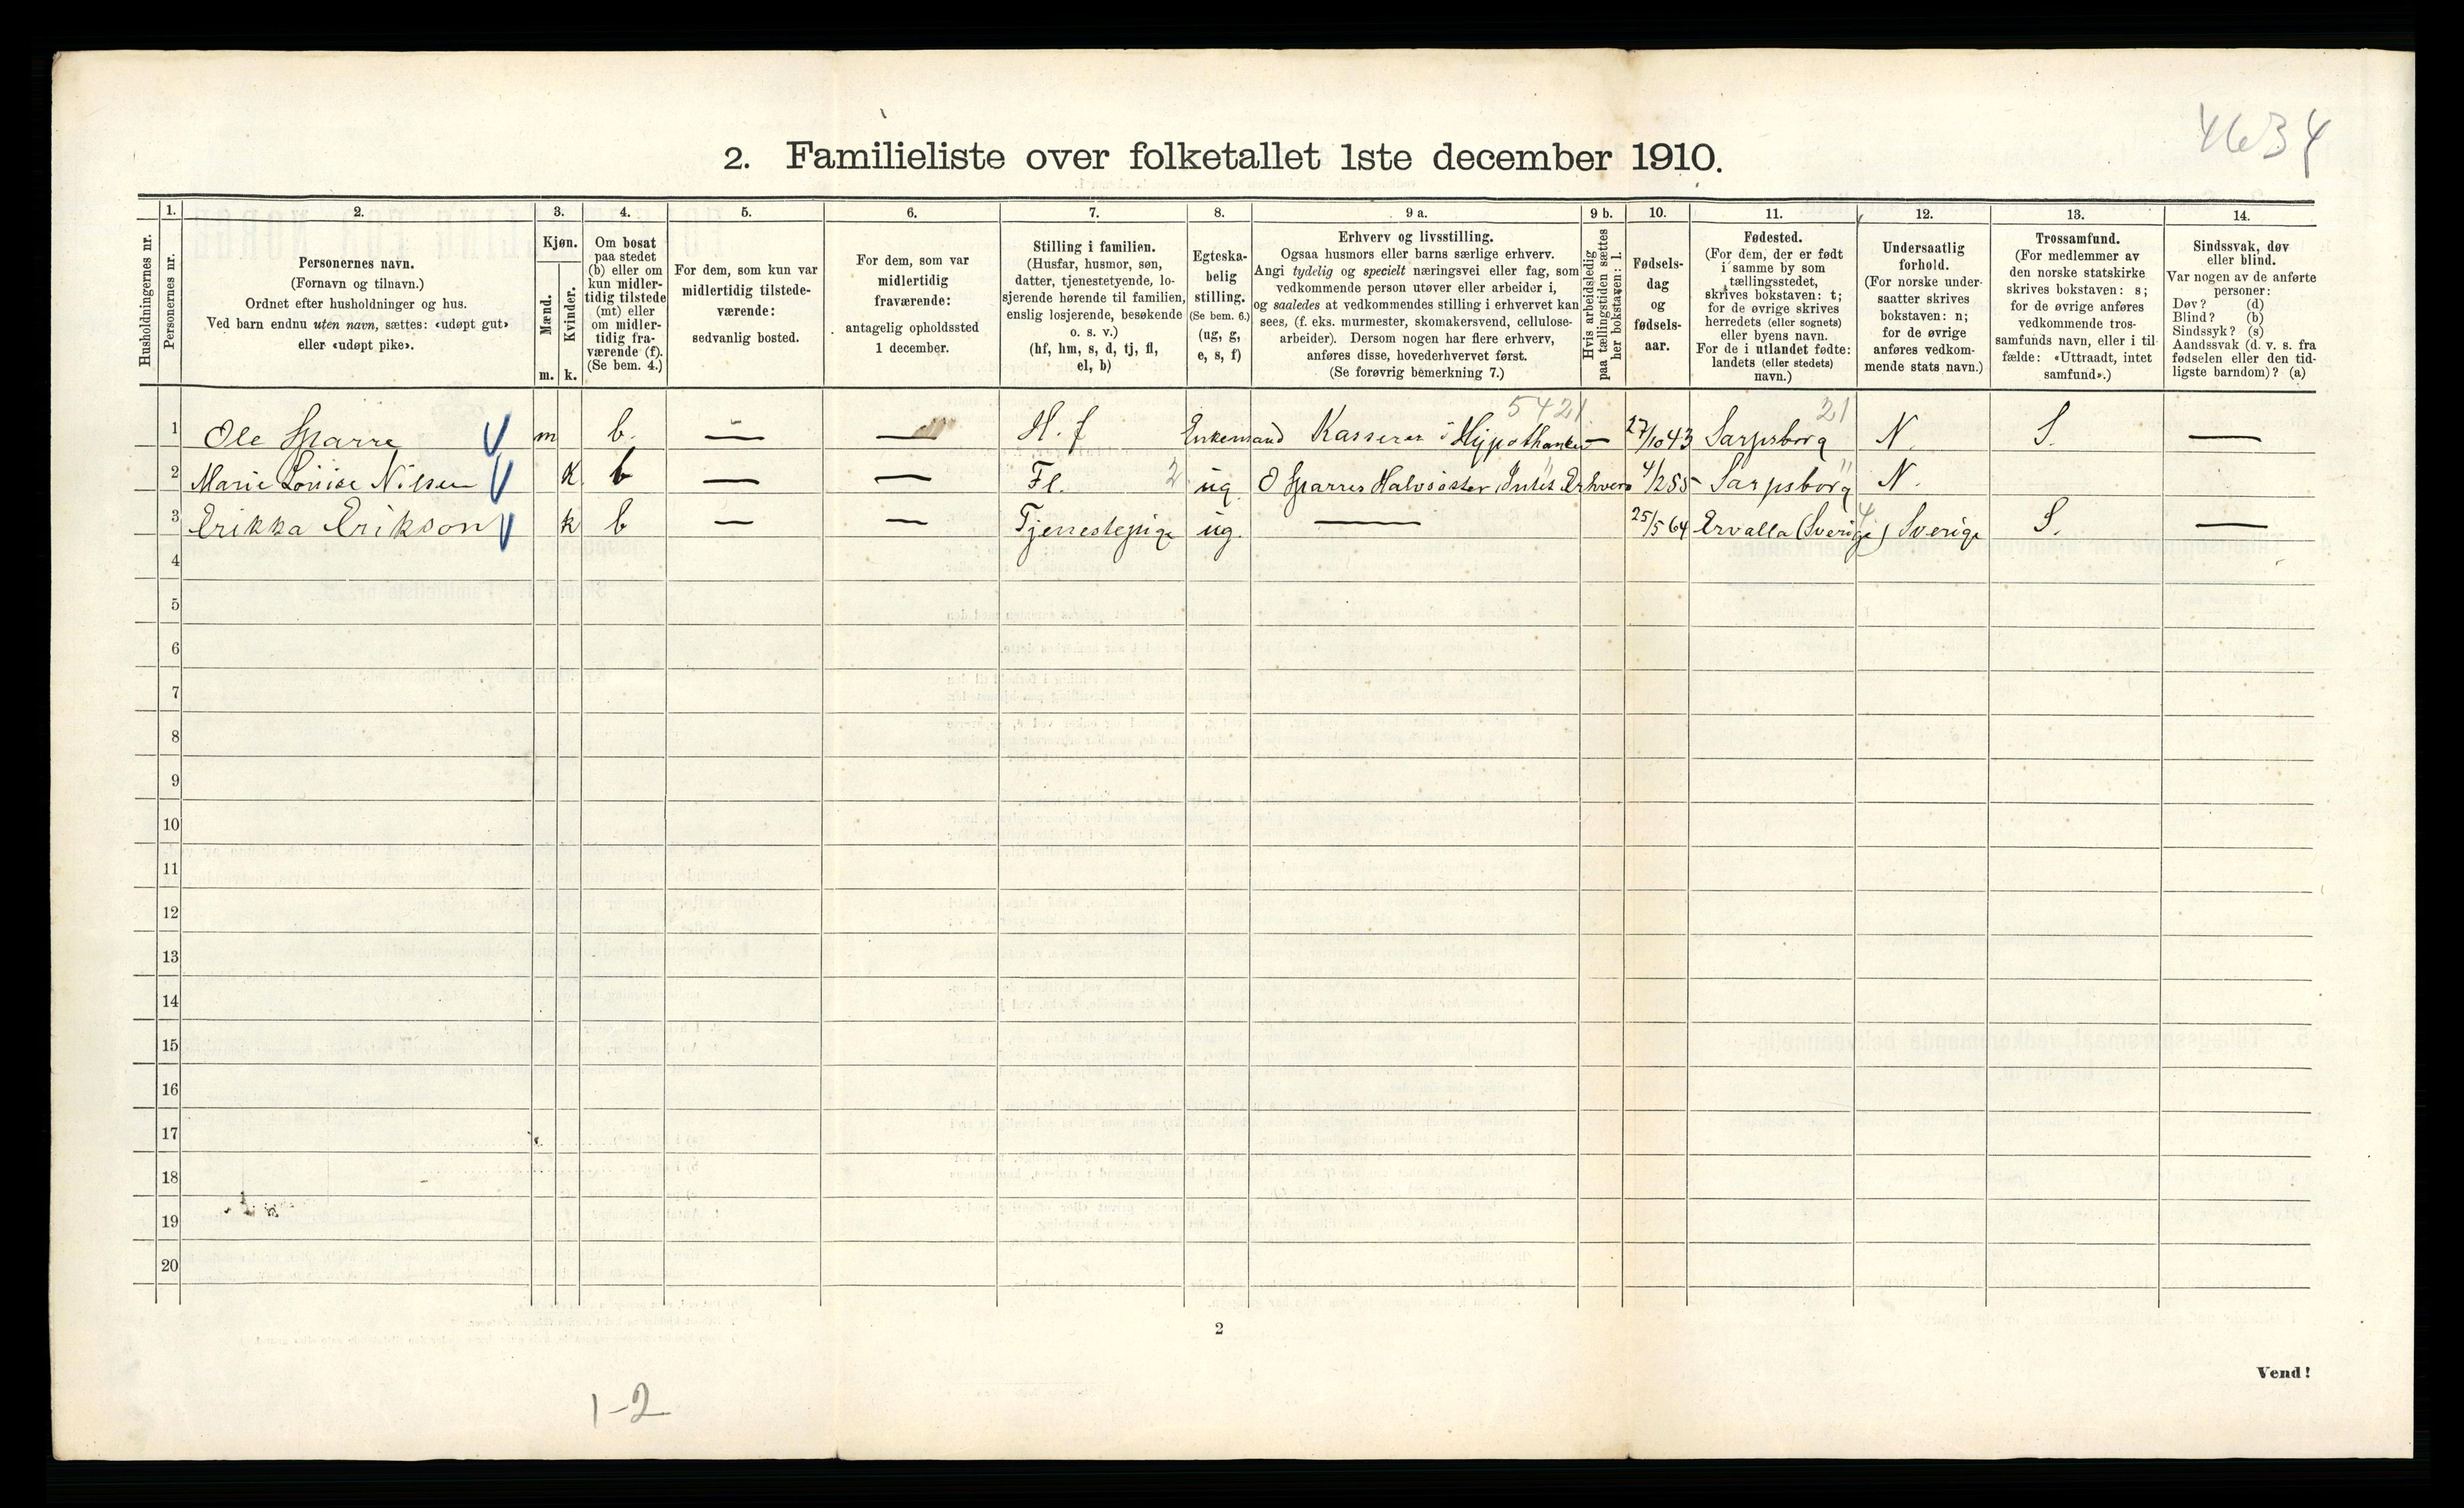 4634
2. Familieliste over folketallet 1ste december 1910.
Husholdningernes nr.
1.
Personernes nr.
2.
Personernes navn.
(Fornavn og tilnavn.)
Ordnet efter husholdninger og hus.
Ved barn endnu uten navn, sættes: «udøpt gut»
eller «udøpt pike».
3.
Kjøn.
Mænd.
Kvinder.
m. k.
4.
Om bosat
paa stedet
(b) eller om
kun midler-
tidig tilstede
(mt) eller
om midler-
tidig fra-
værende (f).
(Se bem. 4.)
5.
For dem, som kun var
midlertidig tilstede-
værende:
sedvanlig bosted.
6.
For dem, som var
midlertidig
fraværende:
antagelig opholdssted
1 december.
7.
Stilling i familien.
(Husfar, husmor, søn,
datter, tjenestetyende, lo-
sjerende hørende til familien,
enslig losjerende, besøkende
o. s. v.)
(hf, hm, s, d, tj, fl,
el, b)
8.
Egteska-
belig
stilling.
(Se bem. 6.)
(ug, g,
e, s, f)
9 a.
Erhverv og livsstilling.
Ogsaa husmors eller barns særlige erhverv.
Angi tydelig og specielt næringsvei eller fag, som
vedkommende person utøver eller arbeider i,
og saaledes at vedkommendes stilling i erhvervet kan
sees, (f. eks. murmester, skomakersvend, cellulose-
arbeider). Dersom nogen har flere erhverv,
anføres disse, hovederhvervet først.
(Se forøvrig bemerkning 7.)
9 b.
Hvis arbeidsledig
paa tællingstiden sættes
her bokstaven: l.
10.
Fødsels-
dag
og
fødsels-
aar.
11.
Fødested.
(For dem, der er født
i samme by som
tællingsstedet,
skrives bokstaven: t;
for de øvrige skrives
herredets (eller sognets)
eller byens navn.
For de i utlandet fødte:
landets (eller stedets)
navn.)
12.
Undersaatlig
forhold.
(For norske under-
saatter skrives
bokstaven: n;
for de øvrige
anføres vedkom-
mende stats navn.)
13.
Trossamfund.
(For medlemmer av
den norske statskirke
skrives bokstaven: s;
for de øvrige anføres
vedkommende tros-
samfunds navn, eller i til-
fælde: «Uttraadt, intet
samfund».)
14.
Sindssvak, døv
eller blind.
Var nogen av de anførte
personer:
Døv? (d)
Blind? (b)
Sindssyk? (s)
Aandssvak (d. v. s. fra
fødselen eller den tid-
ligste barndom)? (a)
5421 21
1 Ole Sparre V m b. — — H. f Enkemand Kasserer i Hypothanken — 27/10 43 Sarpsborg N. S. —
2 Marie Louise Nilsen V k. b — — Fl. 2 ug. O Sparres Halvsøster, Intet Erhverv 4/2 55 Sarpsborg " N.
3 Erikka Erikson V k b — — Tjenestepige ug. — 25/5 64 Ervalla (Sverige) 4 Sverige S. —
4
5
6
7
8
9
10
11
12
13
14
15
16
17
18
19
20
2
Vend!
1-2